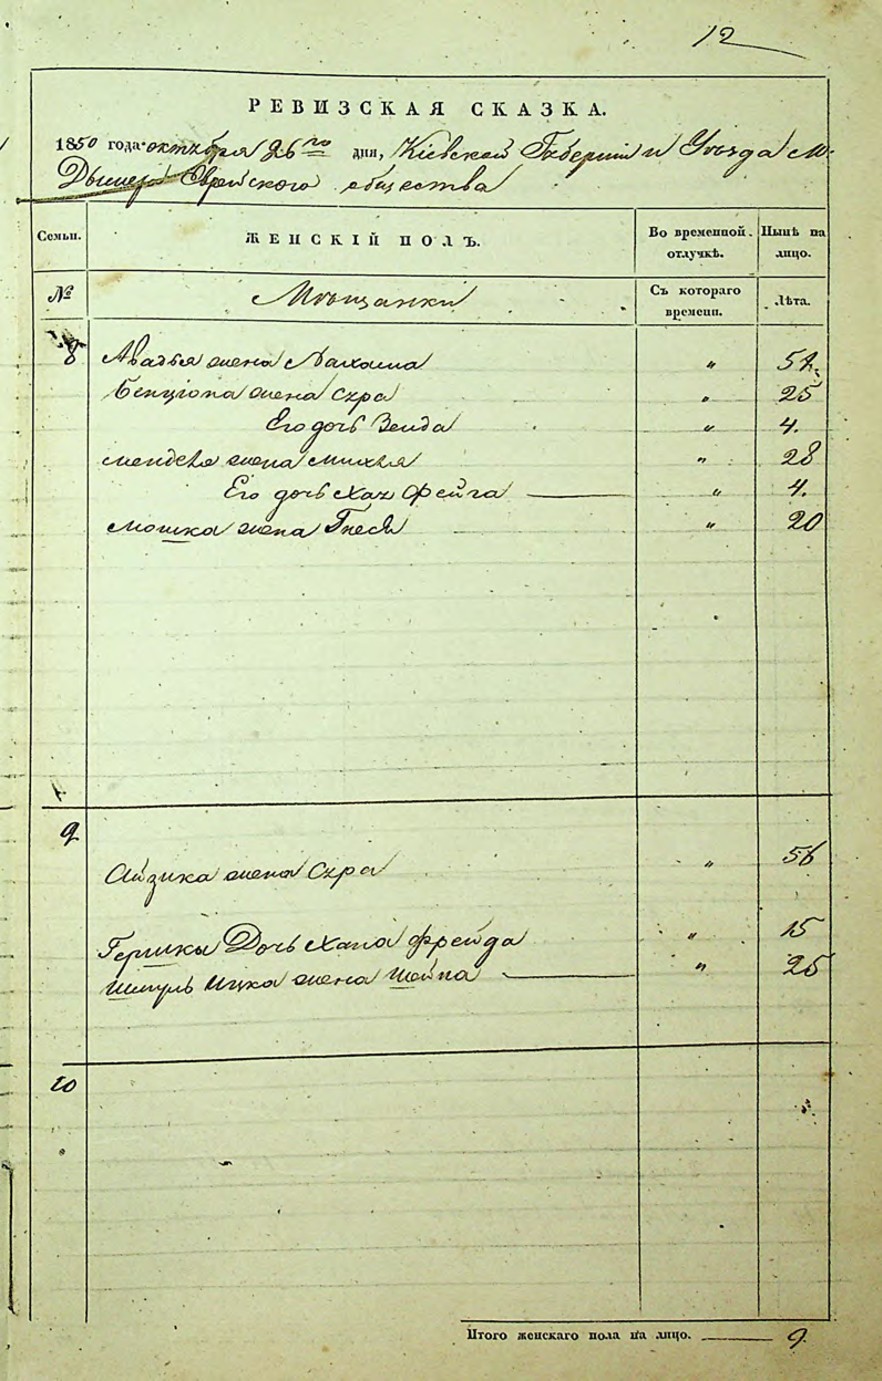 12
РЕВИЗСКАЯ СКАЗКА.
1850 года октября 26го дня, Кіевской Губерніи и Уѣзда м:
Дымера Еврейского общества
Семьи. ЖЕНСКІЙ ПОЛЪ. Во временной отлучкѣ. Нынѣ на лицо.
№ Мѣщанки Съ котораго времени. Лѣта.
8 Авадья жена Нахама " 54
Бенціона жена Сура " 25
Его дочь Зелда " 4.
Менделя жена Михля " 28
Его дочь Хая Фейга " 4.
Мошка жена Гнеся " 20
9
Айзика жена Сура " 56
Гершки Дочь Хана Фрейда " 15
Шмуль Ицка жена Шейна " 25
10
Итого женскаго пола на лицо. 9.